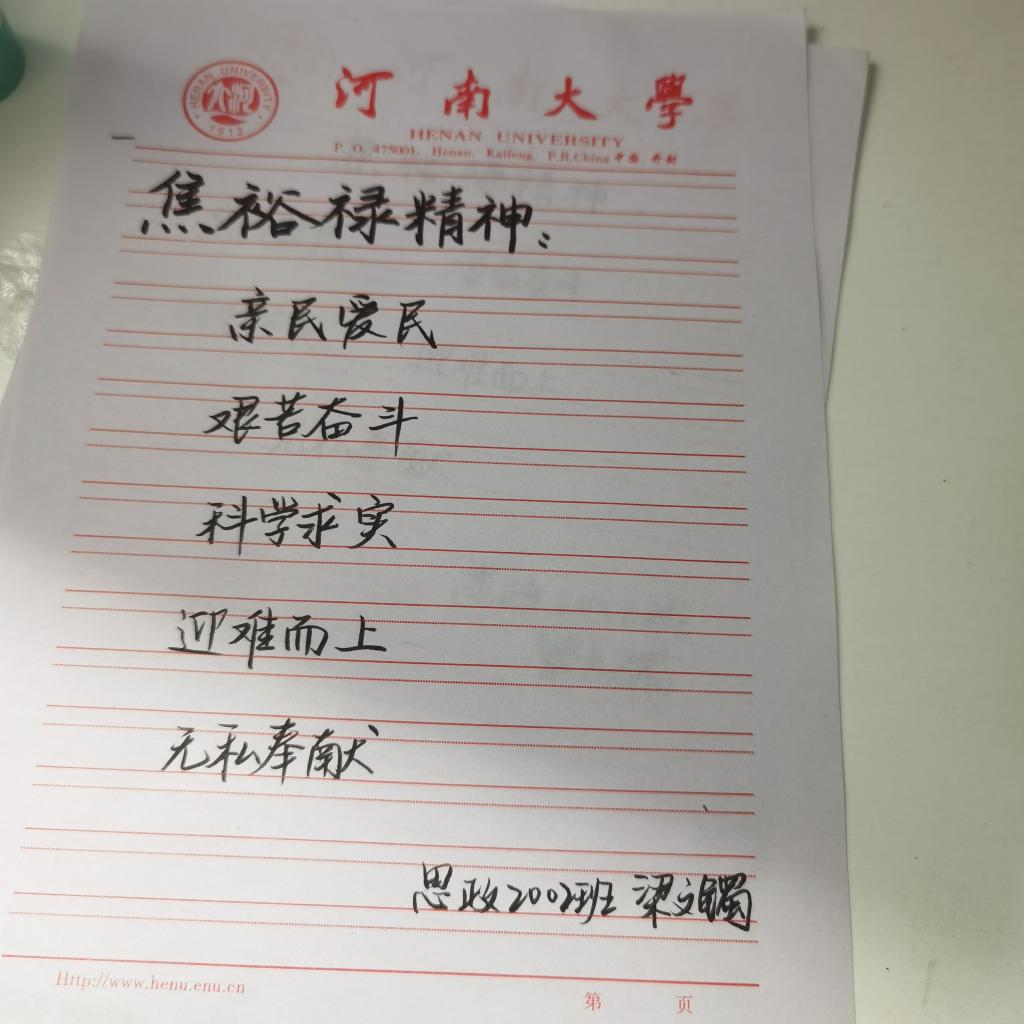 HENAN UNIVERSITY
河大
1912
河南大學
HENAN UNIVERSITY
P. O. 475001. Henan. Kaifeng. P.R.China 中国 开封
焦裕禄精神:
亲民爱民
艰苦奋斗
科学求实
迎难而上
无私奉献
思政2002班 梁文镯
Http://www.henu.enu.cn
第 页